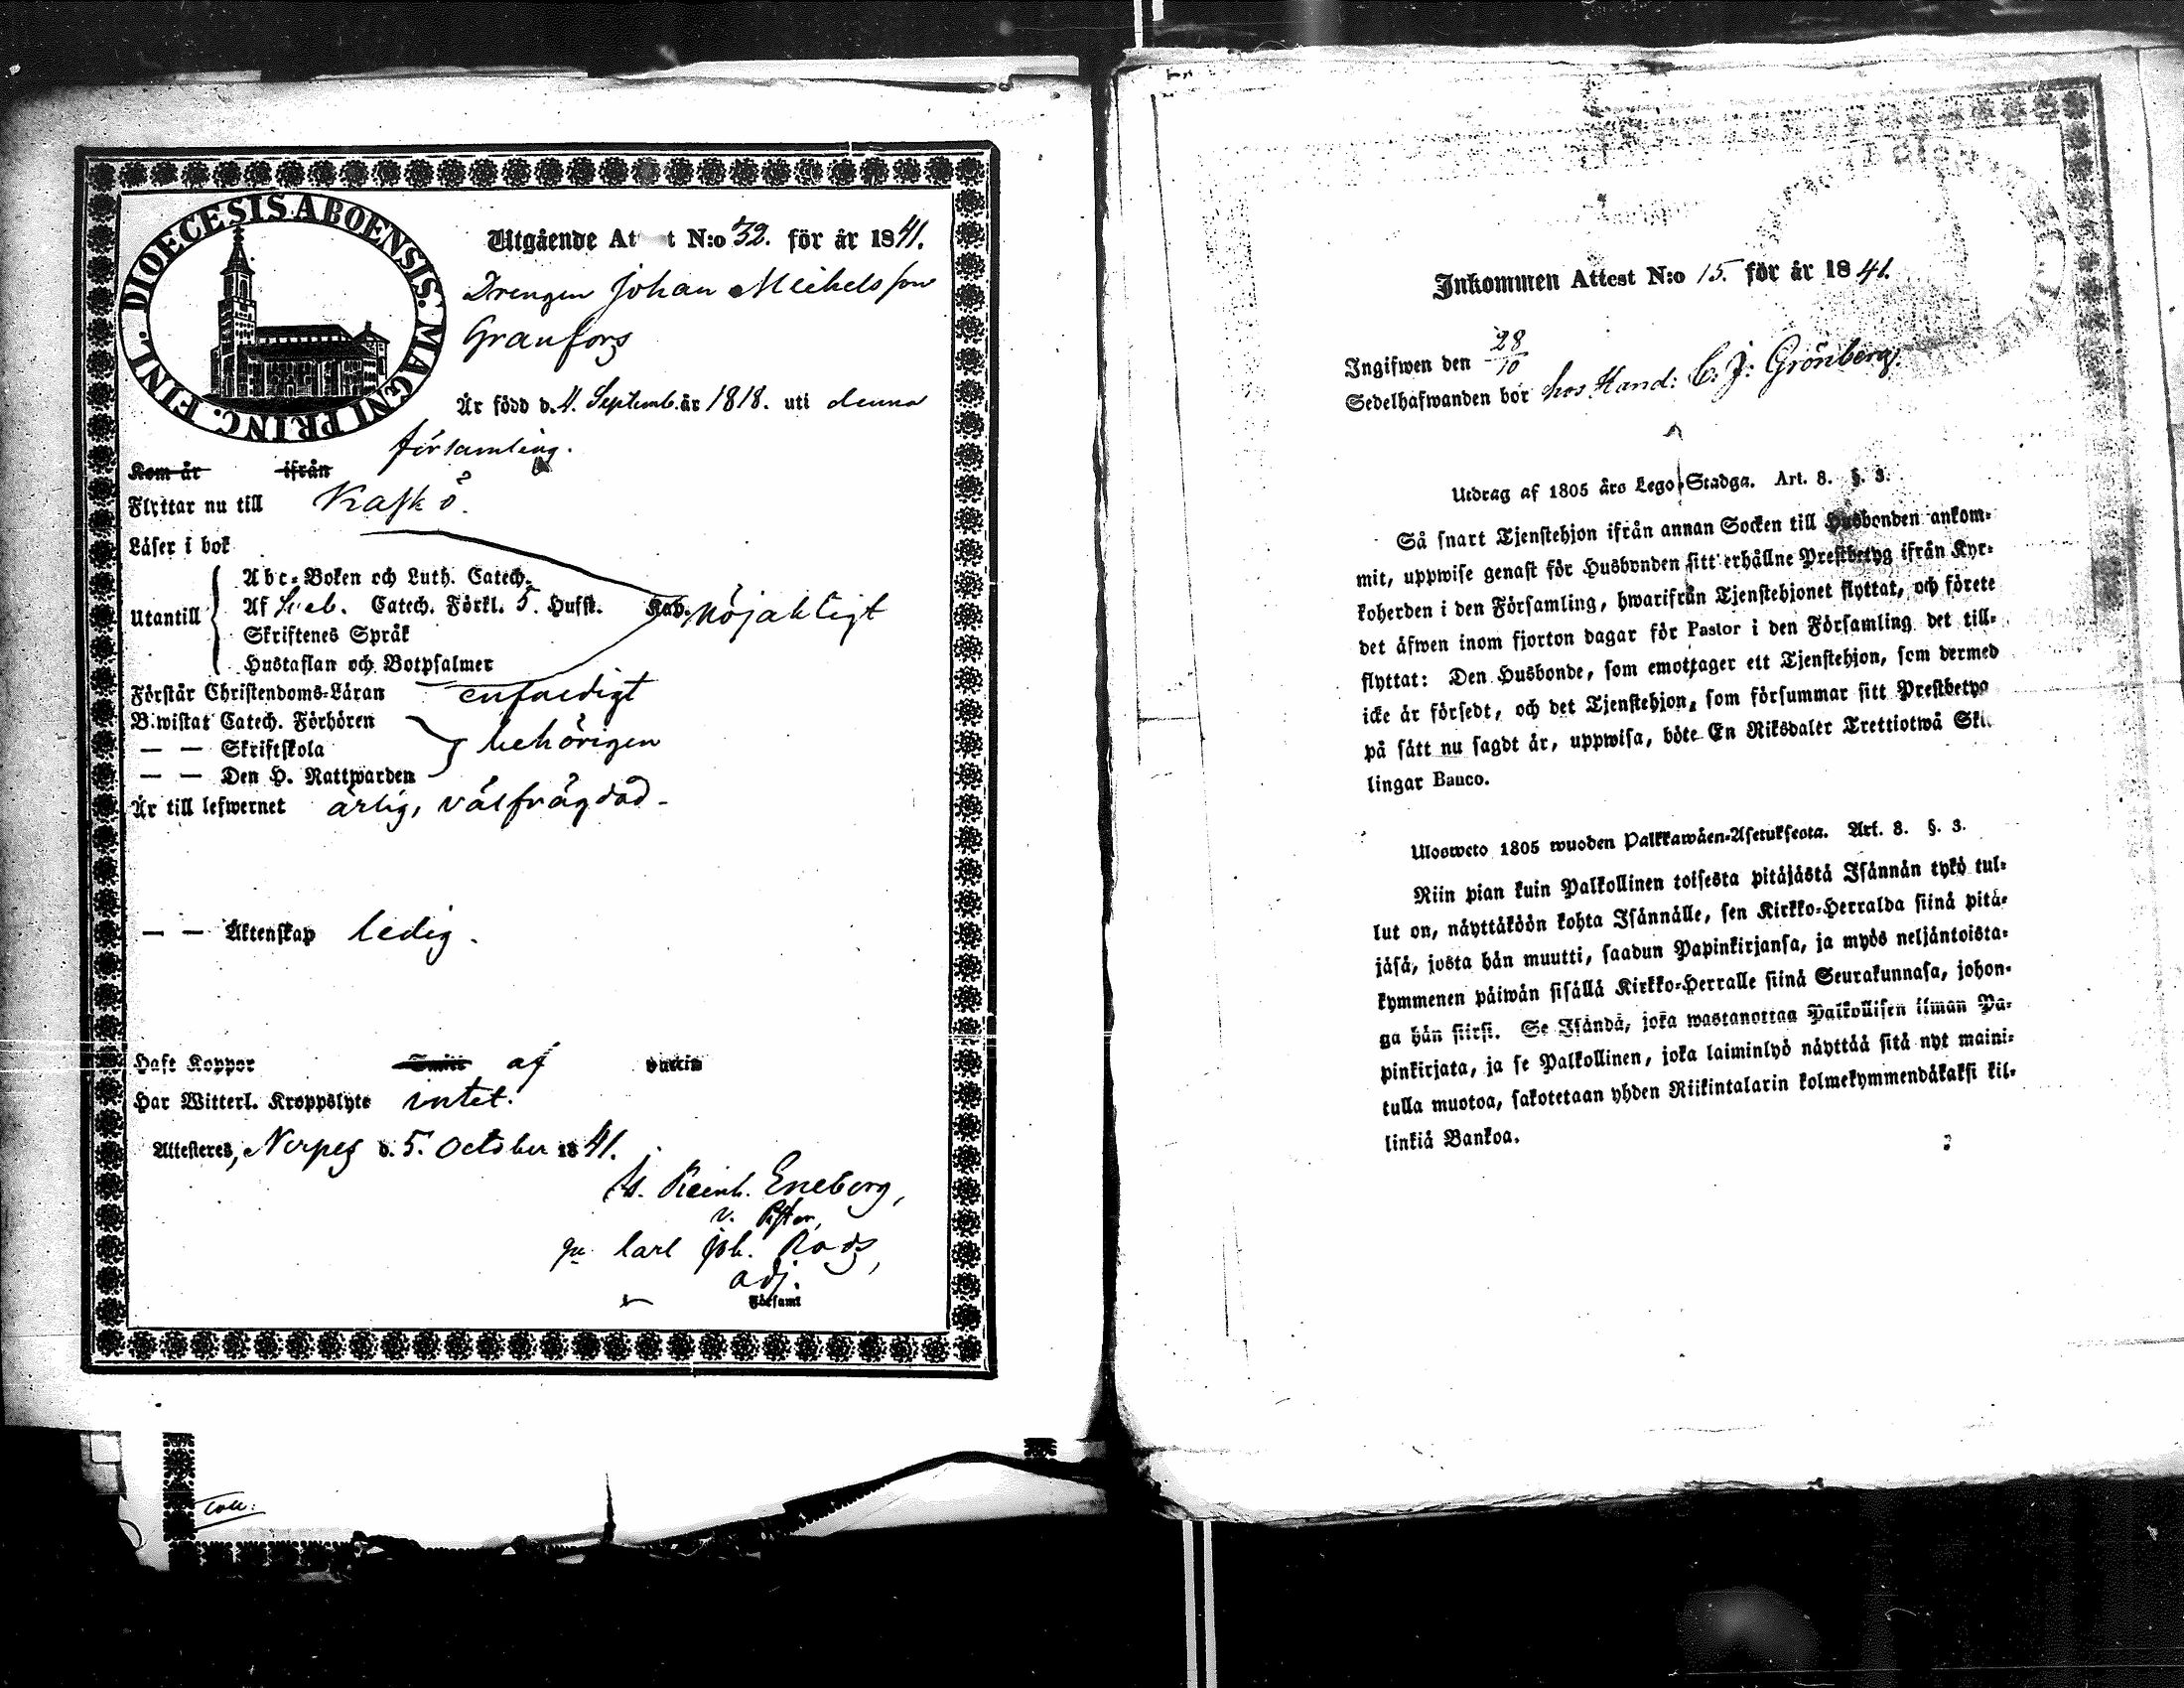 DIOECESIS ABOENSIS. MAGNI PRINC. FINL.
Utgående At t N:o 32. för år 1841.
Drengen Johan Michelsson
Granfors
Är född d. 4. Septemb. år 1818. uti denna
församling.
Kom år ifrån
Flyttar nu till Kaskö.
Läser i bok
Utantill
Abc-Boken och Luth. Catech.
Af Sveb. Catech. Förkl. 5. Hufst. Kap. nöjaktigt
Skriftenes Språk
Hustaflan och Botpsalmer
Förstår Christendoms-Läran enfaldigt
Biwistat Catech. Förhören
— — Skriftskola behörigen
— — Den H. Nattwarden
Är till lefwernet ärlig, välfrägdad.
— — Äktenskap ledig.
Haft Koppor af
Har Witterl. Kroppslyte intet.
Attesteres, Nerpes d. 5. October 1841.
Reinh. Eneberg,
v. Pastor,
Carl Joh. Roos,
adj.
Församl
Inkommen Attest N:o 15. för år 1841.
Ingifwen den 28/10
Sedelhafwanden bor hos Hand: C. J: Grönberg.
Utdrag af 1805 års Lego-Stadga. Art. 8. §. 3.
Så snart Tjenstehjon ifrån annan Socken till Husbonden ankom-
mit, uppwise genast för Husbonden sitt erhållne Prestbetyg ifrån Kyr-
koherden i den Församling, hwarifrån Tjenstehjonet flyttat, och förete
det äfwen inom fjorton dagar för Pastor i den Församling det till-
flyttat: Den Husbonde, som emottager ett Tjenstehjon, som dermed
icke är försedt, och det Tjenstehjon, som försummar sitt Prestbetyg
på sätt nu sagdt är, uppwisa, böte En Riksdaler Trettiotwå Skil
lingar Banco.
Ulosweto 1805 wuoden Palkkawäen-Asetuksesta. Art. 8. §. 3.
Niin pian kuin Palkollinen toisesta pitäjästä Isännän tykö tul-
lut on, näyttäköön kohta Isännälle, sen Kirkko-Herralda siinä pitä-
jäsä, josta hän muutti, saadun Papinkirjansa, ja myös neljäntoista-
kymmenen päiwän sisällä Kirkko-Herralle siinä Seurakunnasa, johon-
ga hän siirsi. Se Isändä, joka wastanottaa Palkollisen ilman Pa-
pinkirjata, ja se Palkollinen, joka laiminlyö näyttää sitä nyt maini-
tulla muotoa, sakotetaan yhden Riikintalarin kolmekymmendäkaksi kil-
linkiä Bankoa.